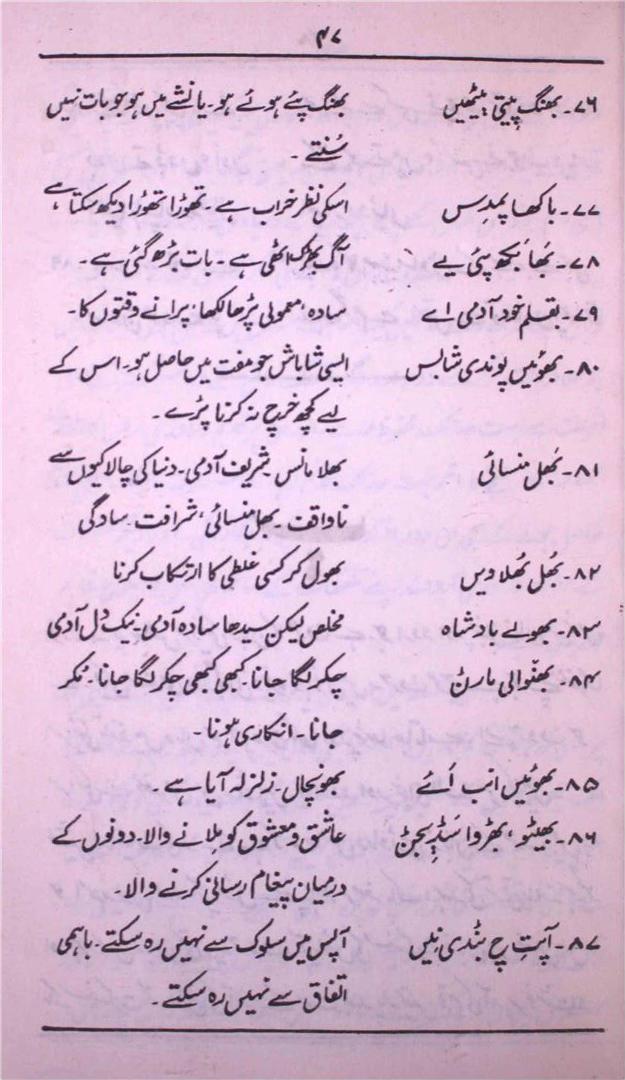 ۴۷
۷۶۔ بھنگ پیتی بیٹھیں بھنگ پئے ہوئے ہو۔ یا نشے میں ہو جو بات نہیں
سُنتے ۔
۷۷۔ باکھا پمدس اسکی نظر خراب ہے۔ تھوڑا تھوڑا دیکھ سکتا ہے
۷۸۔ بُھا بَکھ پئی ہے آگ بھڑک اٹھی ہے ۔ بات بڑھ گئی ہے ۔
۷۹۔ بقلم خود آدمی اے سادہ، معمولی پڑھا لکھا، پرانے وقتوں کا۔
۸۰۔ بھوئیں پوندی شابس ایسی شاباش جو مفت میں حاصل ہو۔ اس کے
لیے کچھ خرچ نہ کرنا پڑے ۔
۸۱۔ بُھل منسائی بھلا مانس۔ شریف آدمی۔ دنیا کی چالاکیوں سے
ناواقف۔ بھل منسائی، شرافت۔ سادگی
۸۲۔ بُھل بُھلا ویں بھول کر کسی غلطی کا ارتکاب کرنا
۸۳۔ بھولے بادشاہ مخلص لیکن سیدھا سادہ آدمی۔ نیک دل آدمی
۸۴۔ بھنّوالی مارݨ چکر لگا جانا۔ کبھی کبھی چکر لگا جانا۔ مُکر
جانا۔ انکاری ہونا۔
۸۵۔ بھوئیں انب اَئے بھونچال۔ زلزلہ آیا ہے ۔
۸۶۔ بھیٹو، بھڑوا عاشق و معشوق کو ملانے والا۔ دونوں کے
درمیان پیغام رسانی کرنے والا۔
۸۷۔ آپت چ بݨدی نہیں آپس میں سلوک سے نہیں رہ سکتے۔ باہمی
اتفاق سے نہیں رہ سکتے ۔